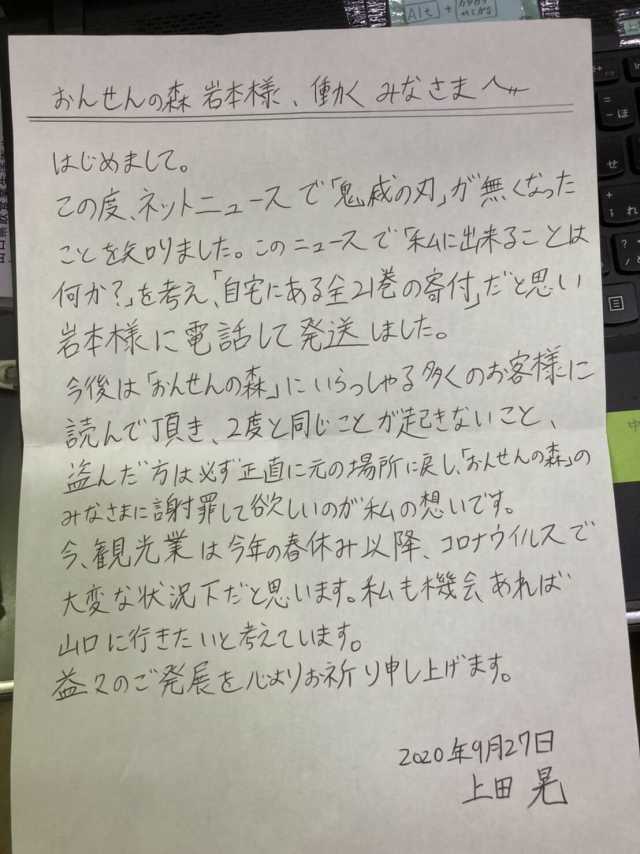 おんせんの森 岩本様、働く みなさまへ
はじめまして。
この度、ネットニュースで「鬼滅の刃」が無くなった
ことを知りました。このニュースで「私に出来ることは
何か?」を考え、「自宅にある全21巻の寄付」だと思い
岩本様に電話して発送しました。
今後は「おんせんの森」にいらっしゃる多くのお客様に
読んで頂き、2度と同じことが起きないこと、
盗んだ方は必ず正直に元の場所に戻し、「おんせんの森」の
みなさまに謝罪して欲しいのが私の想いです。
今、観光業は今年の春休み以降、コロナウイルスで
大変な状況下だと思います。私も機会あれば
山口に行きたいと考えています。
益々のご発展を心よりお祈り申し上げます。
2020年9月27日
上田 晃
Alt +